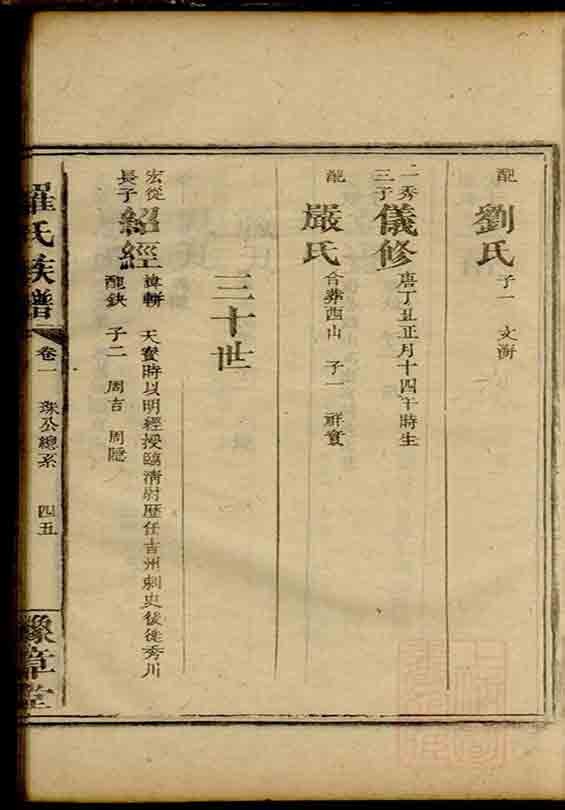 配 劉氏 子一 文海
一秀三子 儀修 唐丁丑正月十四午時生
配 嚴氏 合葬西山 子一 祥實
三十世
宏從長子 紹經 諱輧 天寶時以明經授臨清尉歷任吉州刺史後徙秀川
配缺 子二 周吉 周隱
羅氏族譜 卷一 珠公總系 四五 豫章堂